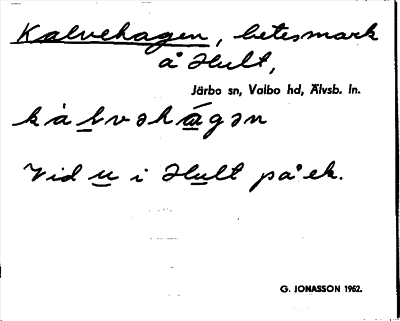 Kalvehagen, betesmark
å Hult,
Järbo sn, Valbo hd, Älvsb. ln.
kàlvəhágən
Vid u i Hult på ek.
G. JONASSON 1962.